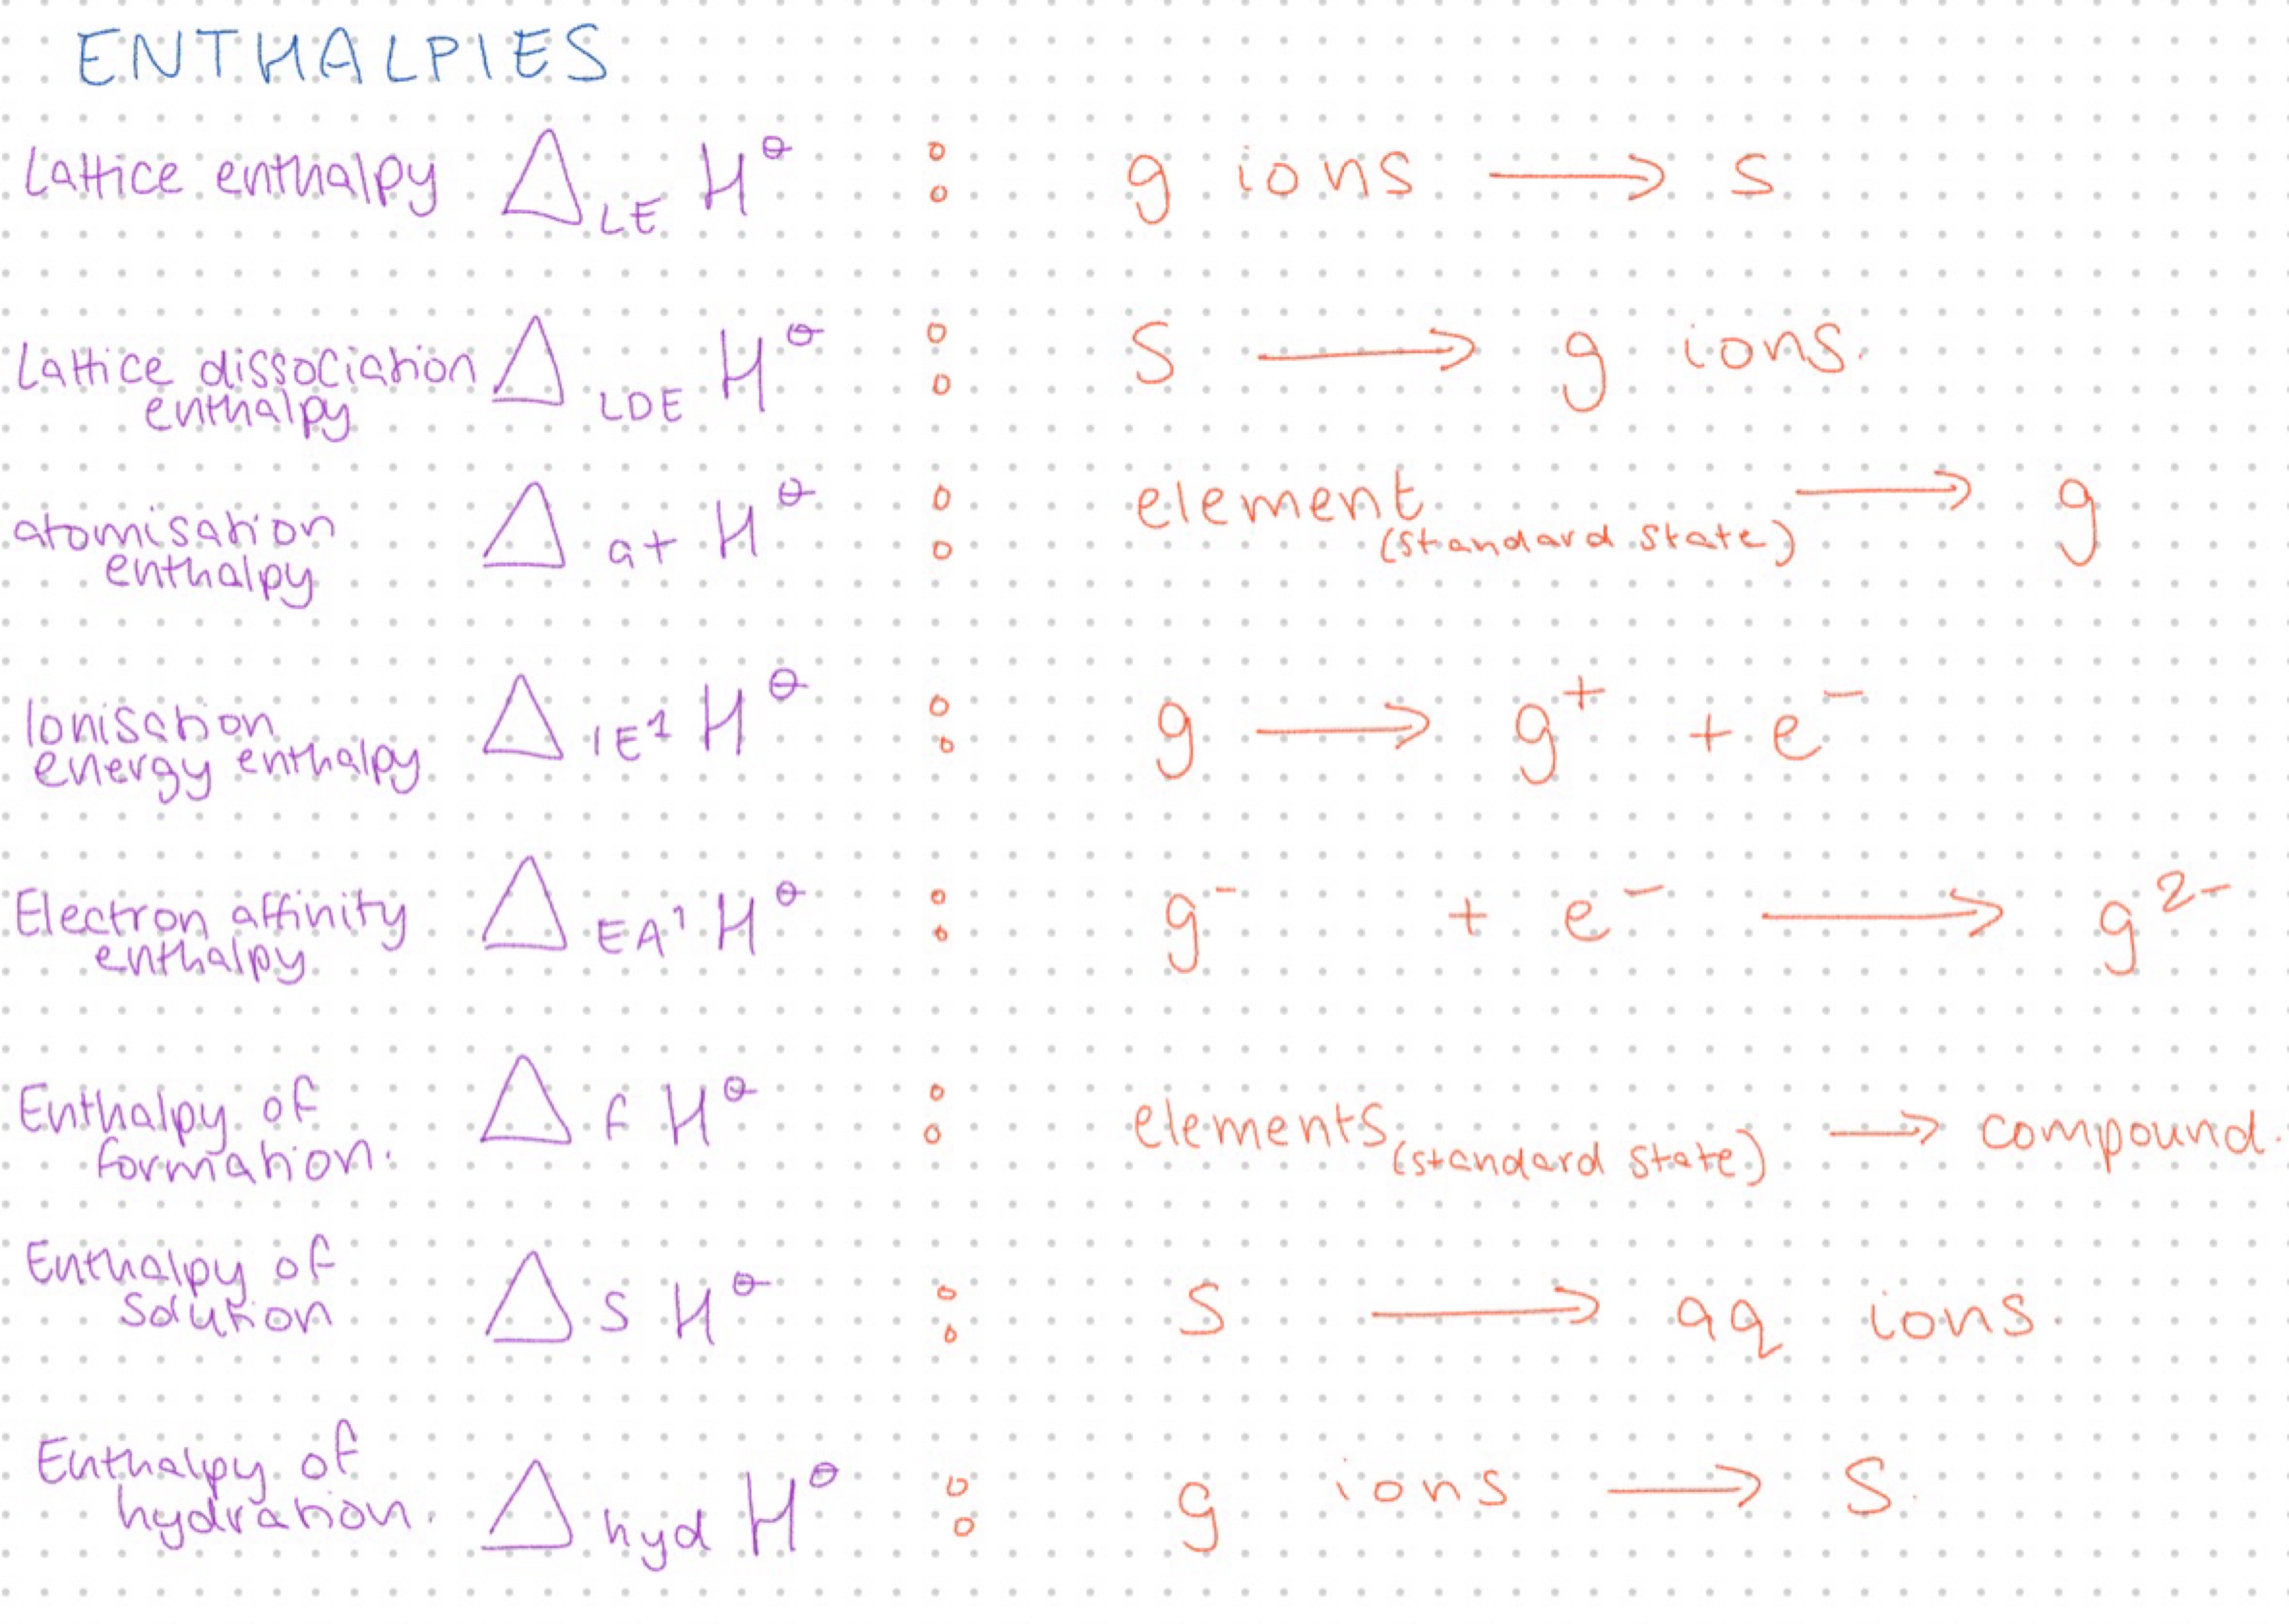 ENTHALPIES
Lattice enthalpy Δ LE H⊖ : g ions → s
Lattice dissociation enthalpy Δ LDE H⊖ : S → g ions.
atomisation enthalpy Δ at H⊖ : element (standard state) → g
Ionisation energy enthalpy Δ IE¹ H⊖ : g → g⁺ + e⁻
Electron affinity enthalpy Δ EA¹ H⊖ : g⁻ + e⁻ → g²⁻
Enthalpy of formation. Δ f H⊖ : elements (standard state) → compound.
Enthalpy of solution Δ S H⊖ : S → aq ions.
Enthalpy of hydration. Δ hyd H⊖ : g ions → S.